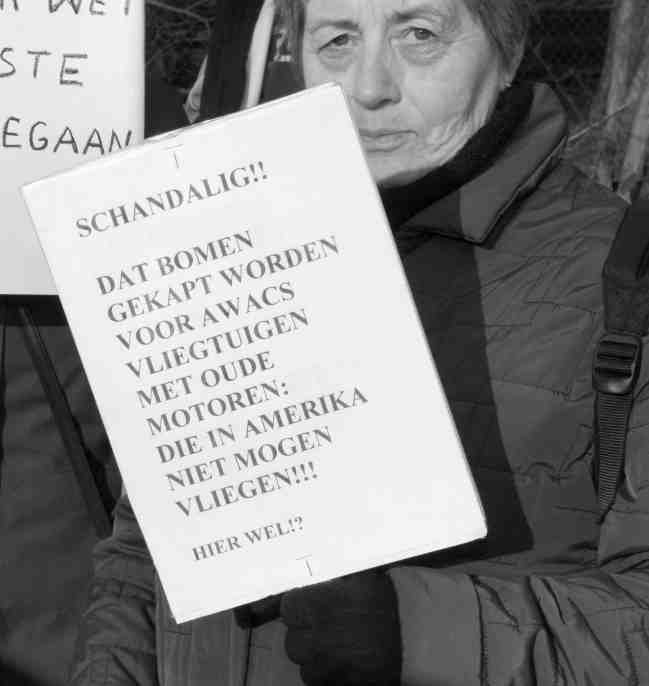 WET
STE
EGAAN
SCHANDALIG!!
DAT BOMEN
GEKAPT WORDEN
VOOR AWACS
VLIEGTUIGEN
MET OUDE
MOTOREN:
DIE IN AMERIKA
NIET MOGEN
VLIEGEN!!!
HIER WEL!?